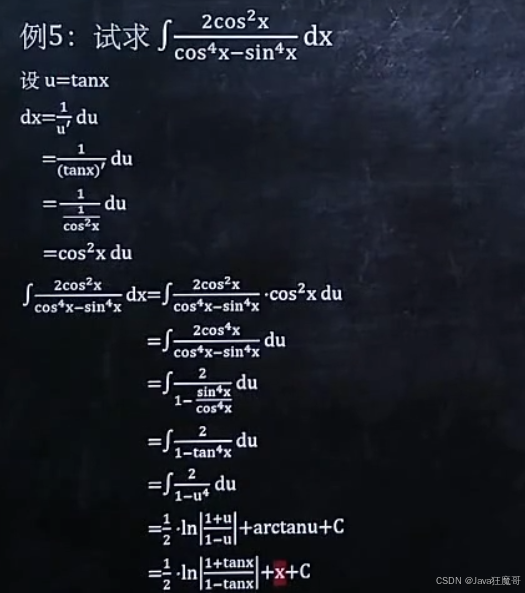 例5：试求∫ 2cos²x/(cos⁴x−sin⁴x) dx
设 u=tanx
dx=1/u′ du
=1/(tanx)′ du
=1/(1/cos²x) du
=cos²x du
∫ 2cos²x/(cos⁴x−sin⁴x) dx=∫ 2cos²x/(cos⁴x−sin⁴x) ·cos²x du
=∫ 2cos⁴x/(cos⁴x−sin⁴x) du
=∫ 2/(1−sin⁴x/cos⁴x) du
=∫ 2/(1−tan⁴x) du
=∫ 2/(1−u⁴) du
=1/2 ·ln|(1+u)/(1−u)|+arctanu+C
=1/2 ·ln|(1+tanx)/(1−tanx)|+x+C
CSDN @Java狂魔哥